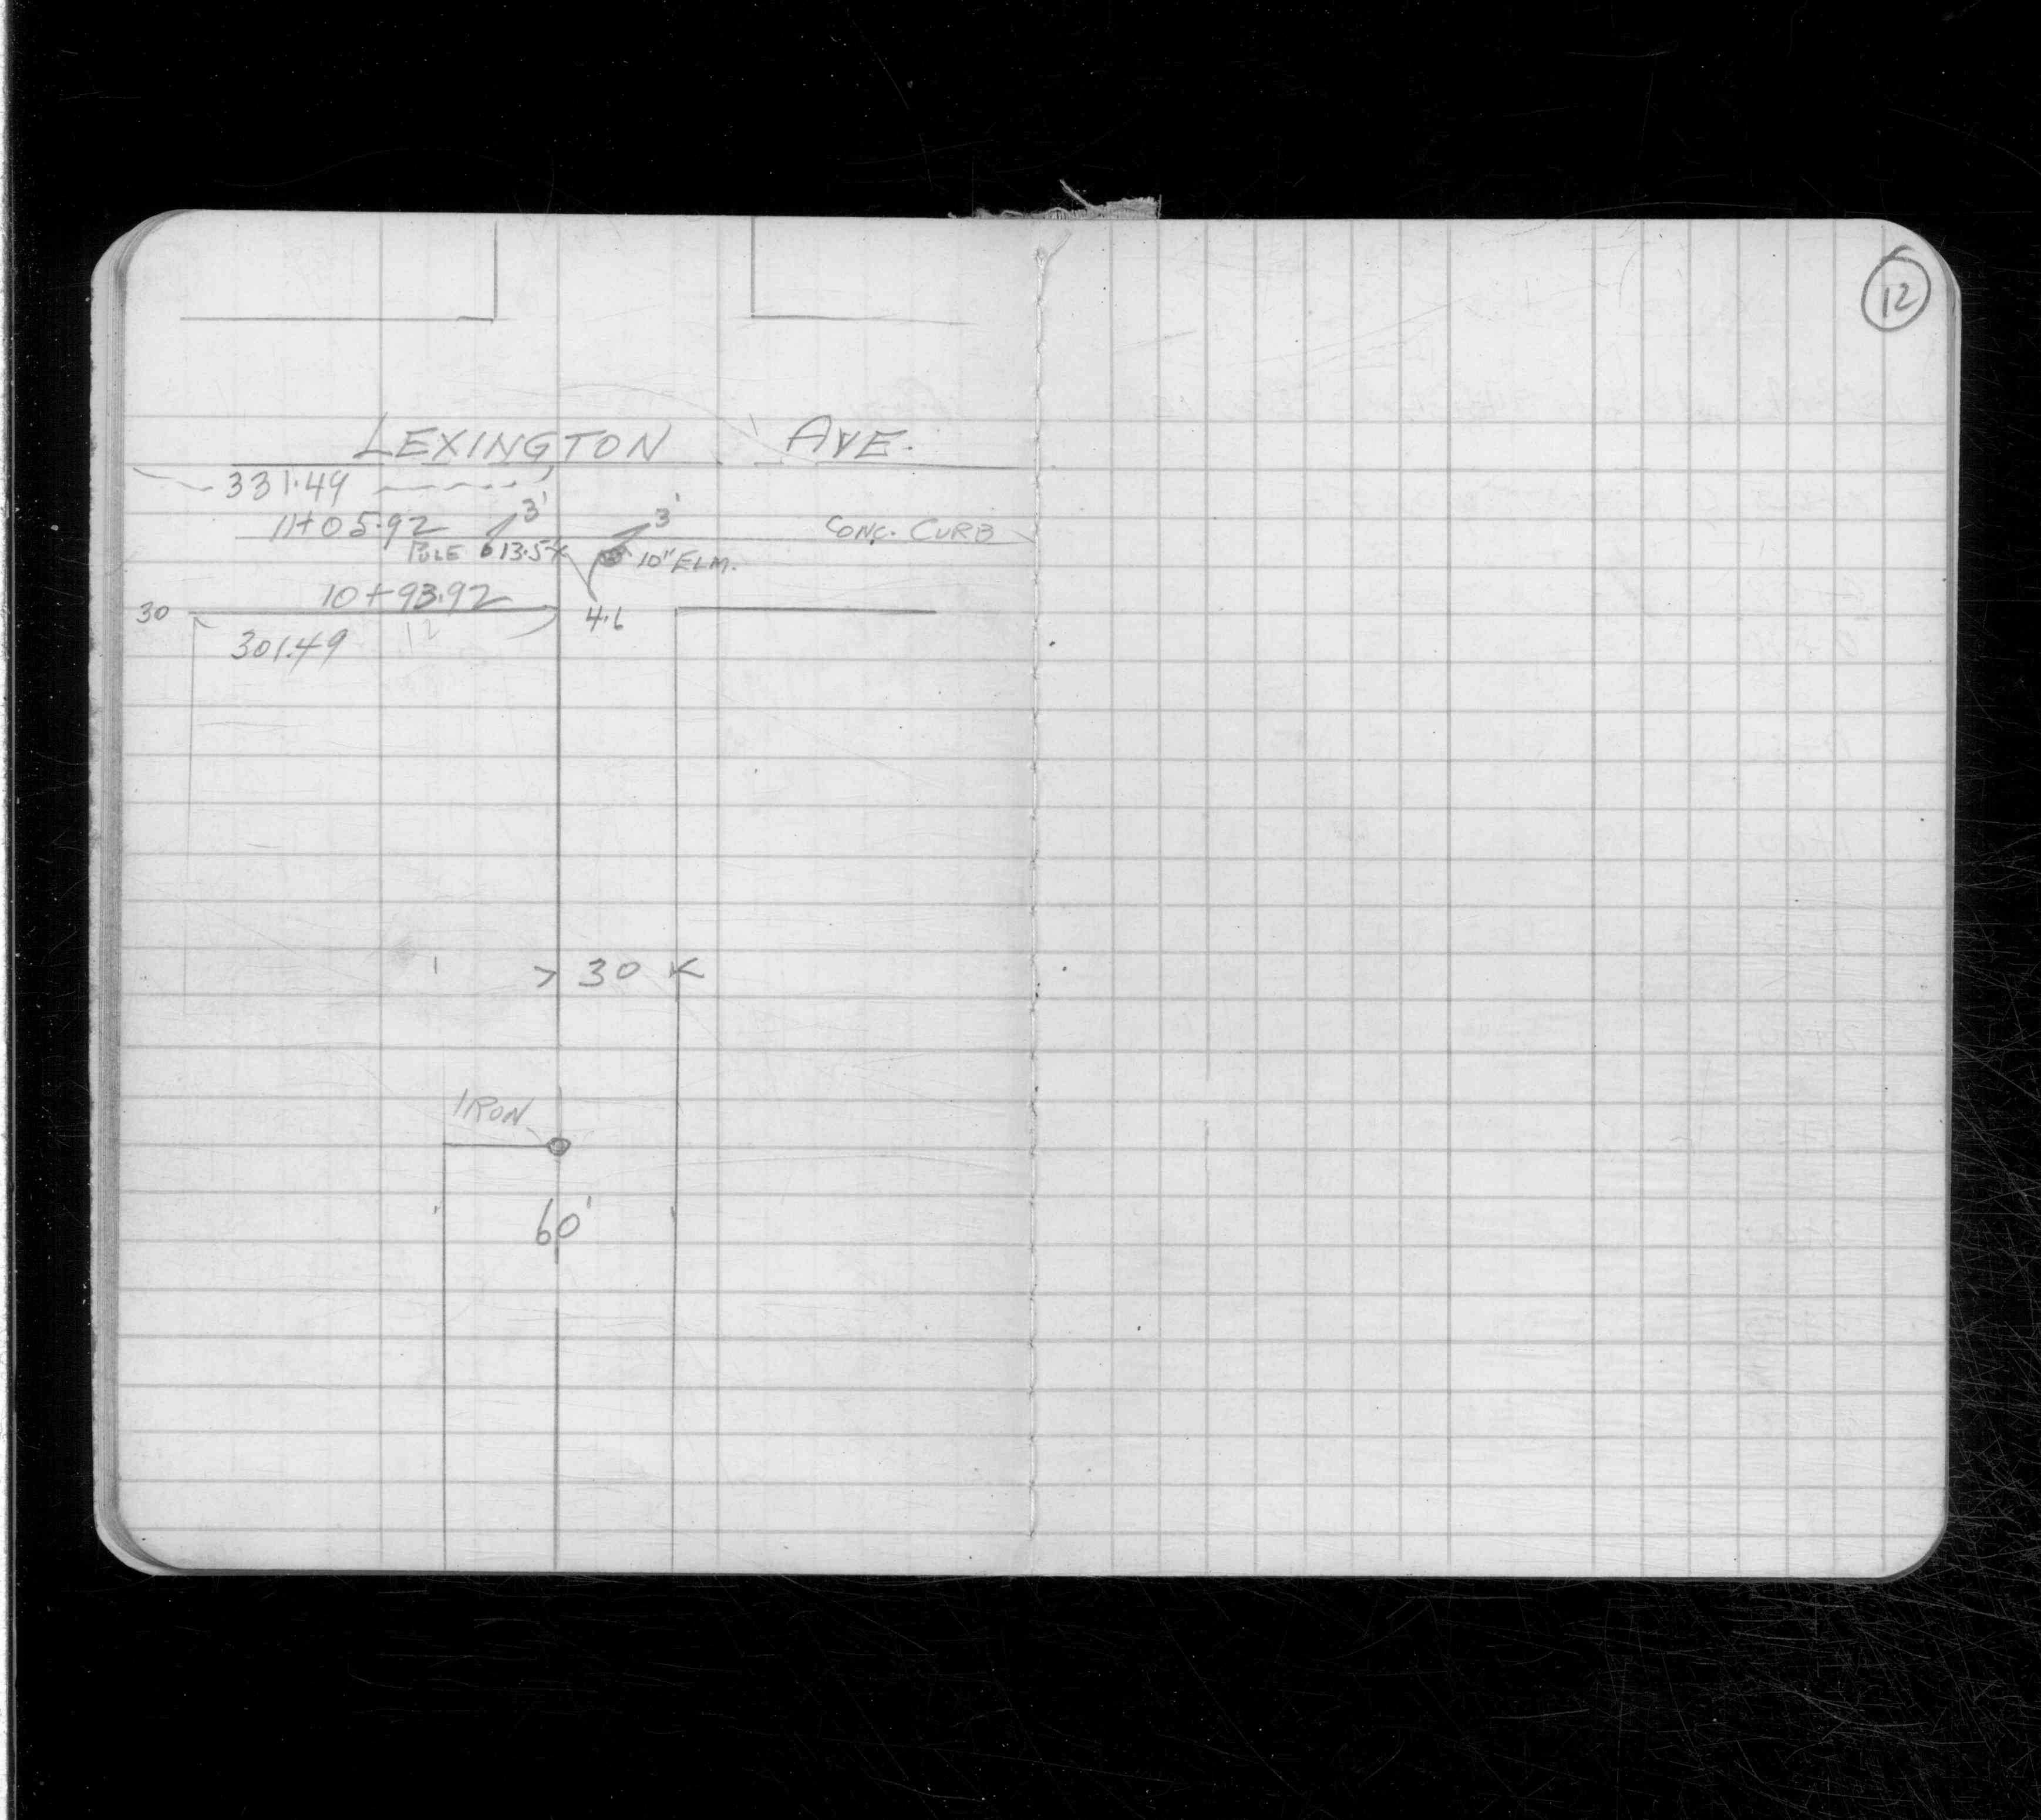 12
LEXINGTON AVE.
331.49
11+05.92 3' 3' CONC. CURB
POLE 13.5 10" ELM.
10+93.92
30 4.6
301.49 12
> 30 <
IRON
60'